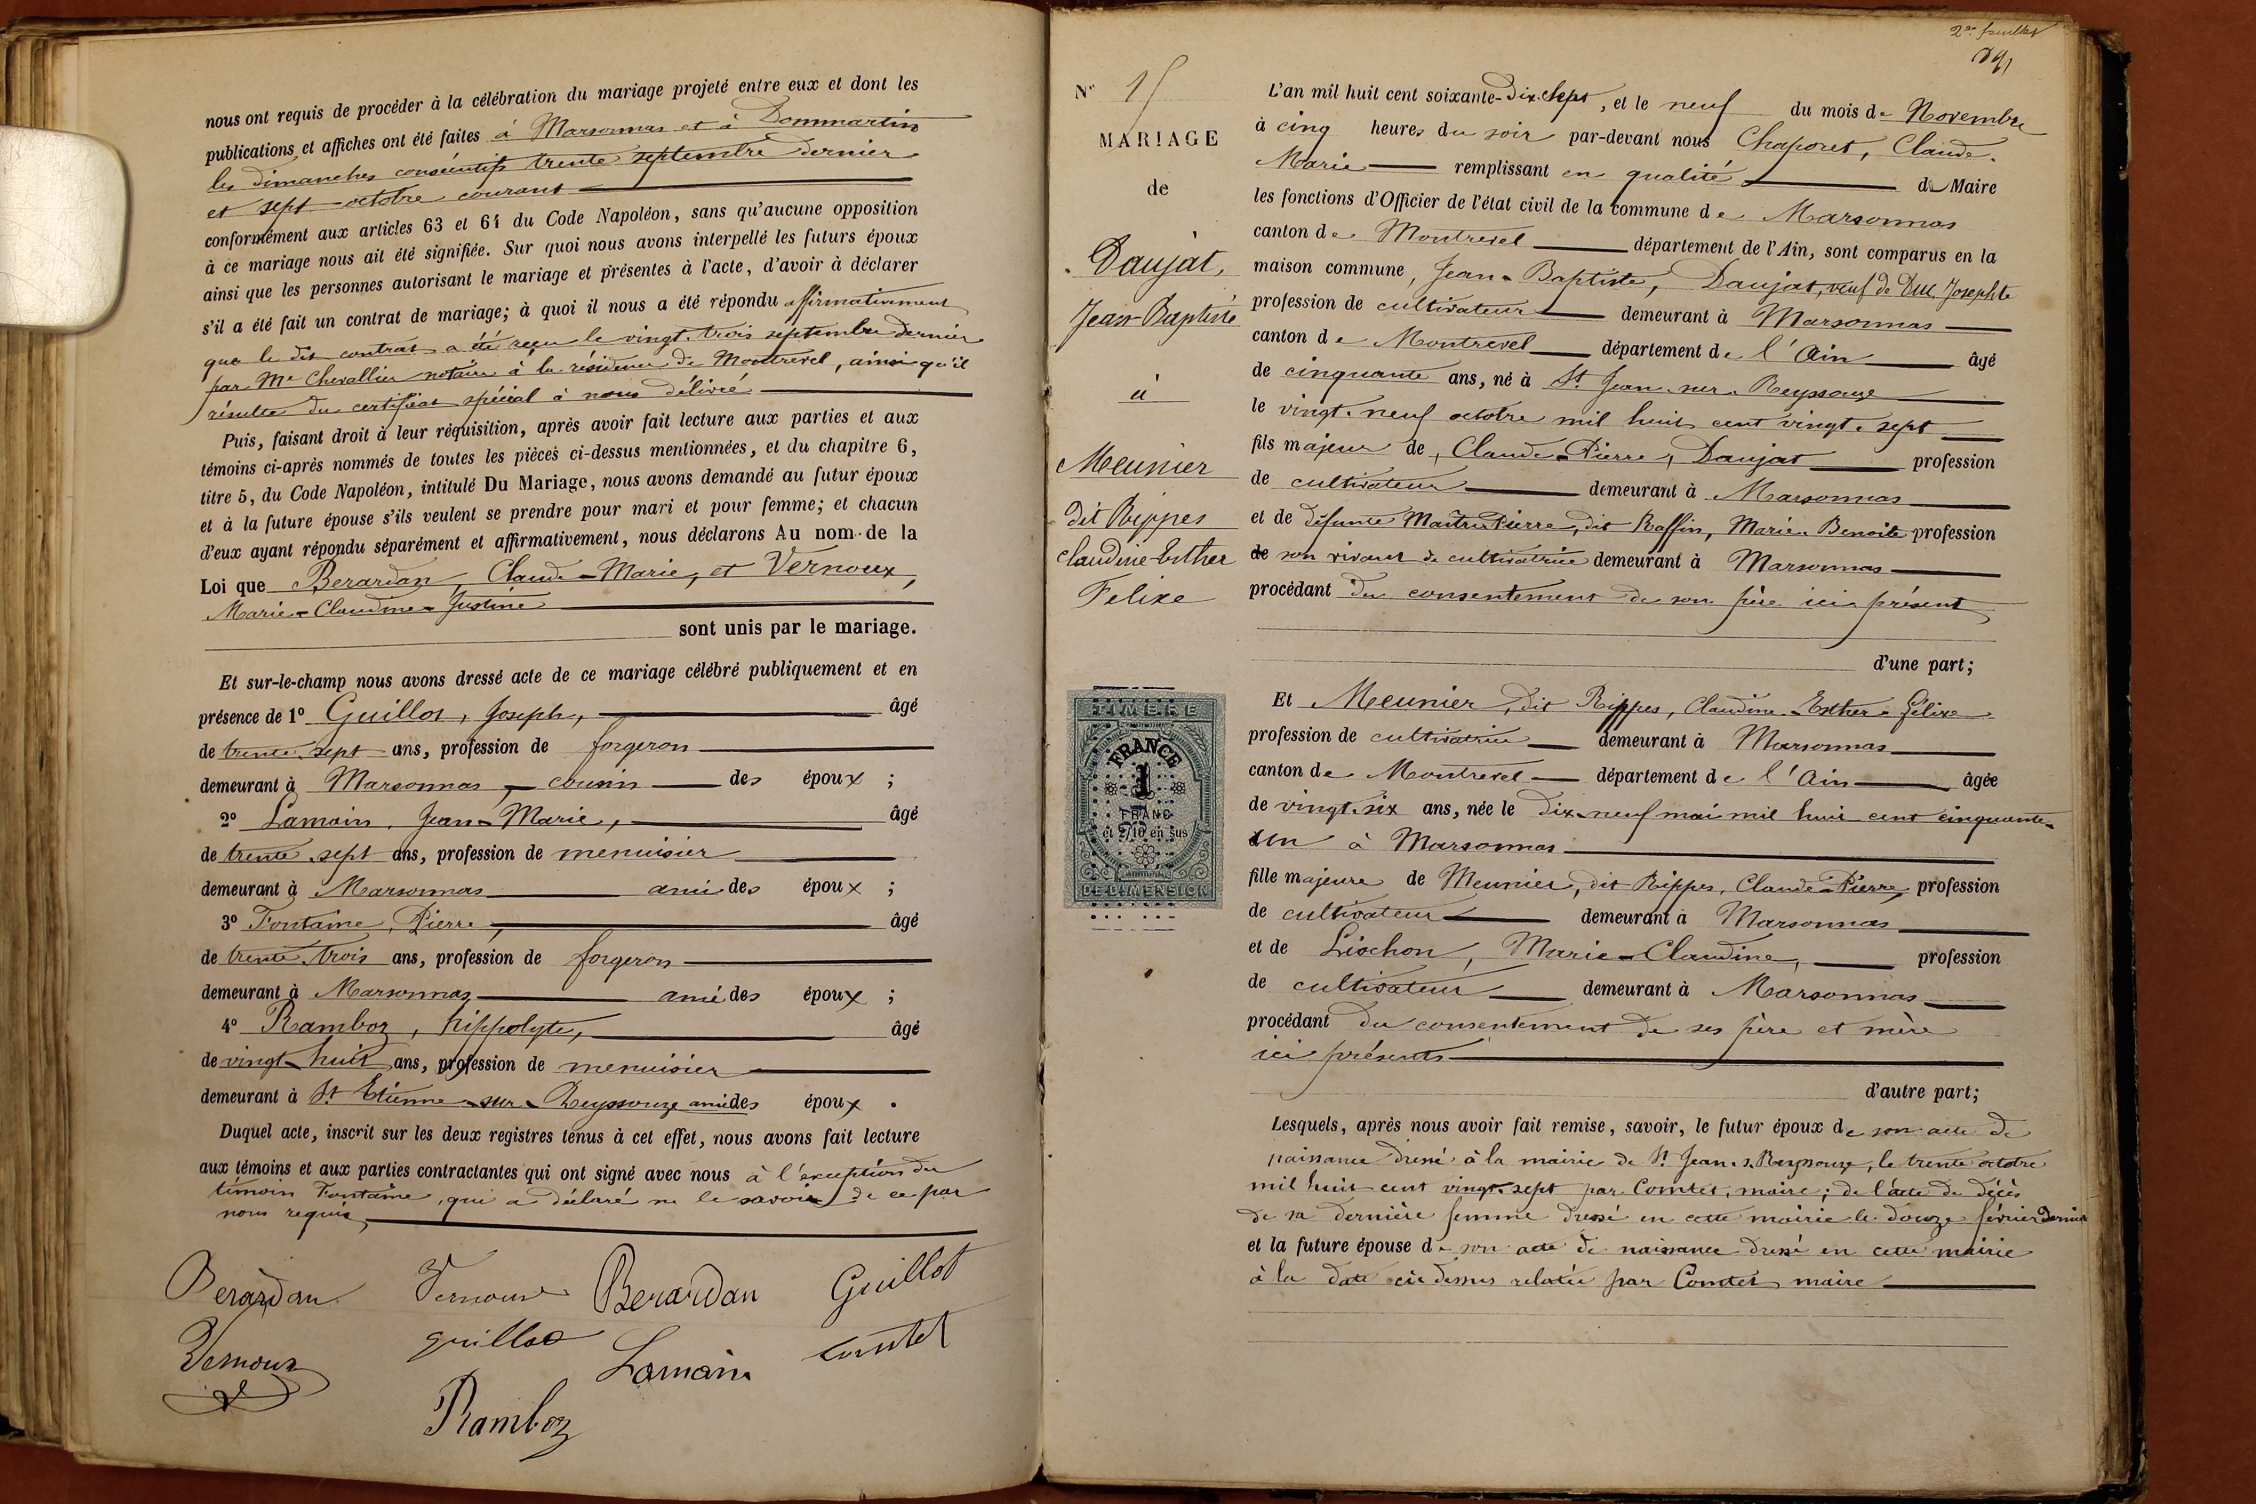 nous ont requis de procéder à la célébration du mariage projeté entre eux et dont les
publications et affiches ont été faites à Marsonnas et à Dommartin
les dimanches consécutifs trente septembre dernier
et sept octobre courant
conformément aux articles 63 et 64 du Code Napoléon, sans qu'aucune opposition
à ce mariage nous ait été signifiée. Sur quoi nous avons interpellé les futurs époux
ainsi que les personnes autorisant le mariage et présentes à l'acte, d'avoir à déclarer
s'il a été fait un contrat de mariage; à quoi il nous a été répondu affirmativement
que le dit contrat a été reçu le vingt-trois septembre dernier
par Me Chevallier notaire à la résidence de Montrevel, ainsi qu'il
résulte du certificat spécial à nous délivré
Puis, faisant droit à leur réquisition, après avoir fait lecture aux parties et aux
témoins ci-après nommés de toutes les pièces ci-dessus mentionnées, et du chapitre 6,
titre 5, du Code Napoléon, intitulé Du Mariage, nous avons demandé au futur époux
et à la future épouse s'ils veulent se prendre pour mari et pour femme; et chacun
d'eux ayant répondu séparément et affirmativement, nous déclarons Au nom de la
Loi que Berardan, Claude-Marie, et Vernoux,
Marie-Claudine-Justine
sont unis par le mariage.
Et sur-le-champ nous avons dressé acte de ce mariage célébré publiquement et en
présence de 1º Guillot, Joseph, âgé
de trente-sept ans, profession de forgeron
demeurant à Marsonnas, cousin des époux ;
2º Lamain, Jean-Marie, âgé
de trente-sept ans, profession de menuisier
demeurant à Marsonnas ami des époux ;
3º Fontaine, Pierre, âgé
de trente-trois ans, profession de forgeron
demeurant à Marsonnas ami des époux ;
4º Ramboz, hippolyte, âgé
de vingt-huit ans, profession de menuisier
demeurant à St Etienne-sur-Reyssouze ami des époux .
Duquel acte, inscrit sur les deux registres tenus à cet effet, nous avons fait lecture
aux témoins et aux parties contractantes qui ont signé avec nous à l'exception du
témoin Fontaine, qui a déclaré ne le savoir de ce par
nous requis,
Berardan Vernoux Berardan Guillot
Vernoux guillot Lamain comtet
Ramboz
2me feuillet
Nº 15
MARIAGE
de
Daujat,
Jean-Baptiste
à
Meunier
dit Rippes
Claudine-Esther
Felixe
TIMBRE
FRANCE
1
FRANC
et 2/10 en sus
DE DIMENSION
L'an mil huit cent soixante-Dix-Sept, et le neuf du mois de Novembre
à cinq heures du soir par-devant nous Chaporet, Claude-
Marie remplissant en qualité de Maire
les fonctions d'Officier de l'état civil de la commune de Marsonnas
canton de Montrevel département de l'Ain, sont comparus en la
maison commune, Jean-Baptiste, Daujat, veuf de Duc Josephte
profession de cultivateur demeurant à Marsonnas
canton de Montrevel département de l'Ain âgé
de cinquante ans, né à St Jean-sur-Reyssouze
le vingt-neuf octobre mil huit cent vingt-sept
fils majeur de Claude-Pierre, Daujat profession
de cultivateur demeurant à Marsonnas
et de défunte Maitre Pierre, dit Raffin, Marie-Benoite profession
de son vivant de cultivatrice demeurant à Marsonnas
procédant du consentement de son père ici présent
d'une part;
Et Meunier, dit Rippes, Claudine-Esther-Felixe
profession de cultivatrice demeurant à Marsonnas
canton de Montrevel département de l'Ain âgée
de vingt-six ans, née le dix-neuf mai mil huit cent cinquante-
un à Marsonnas
fille majeure de Meunier, dit Rippes, Claude-Pierre, profession
de cultivateur demeurant à Marsonnas
et de Liochon, Marie-Claudine, profession
de cultivateur demeurant à Marsonnas
procédant du consentement de ses père et mère
ici présents
d'autre part;
Lesquels, après nous avoir fait remise, savoir, le futur époux de son acte de
naissance dressé à la mairie de St Jean-s-Reyssouze, le trente octobre
mil huit cent vingt-sept par Comtet, maire; de l'acte de décès
de sa dernière femme dressé en cette mairie le douze février dernier
et la future épouse de son acte de naissance dressé en cette mairie
à la date ci-dessus relatée par Comtet maire